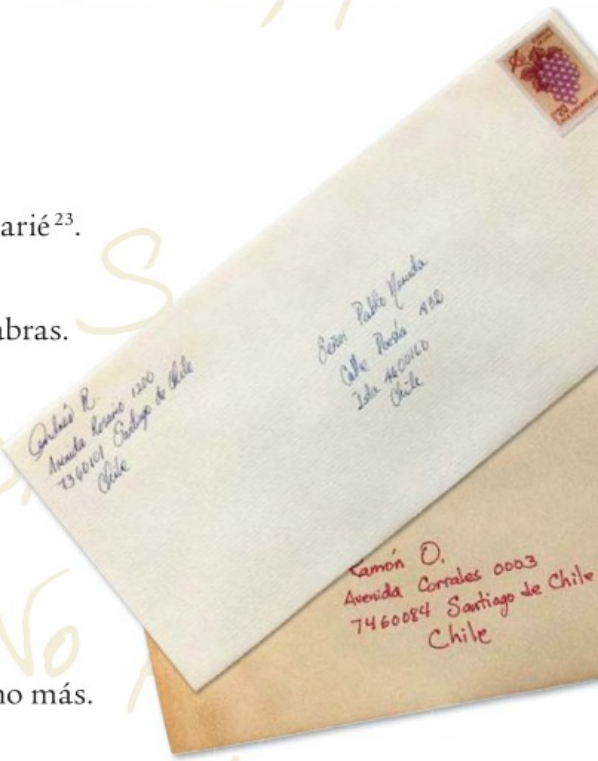 arié²³.
abras.
no más.
S
No
R.
Avenida Rosario 1200
7360101 Santiago de Chile
Chile
Señor Pablo Neruda
Calle Poesía
Isla 4400160
Chile
Ramón O.
Avenida Corrales 0003
7460084 Santiago de Chile
Chile